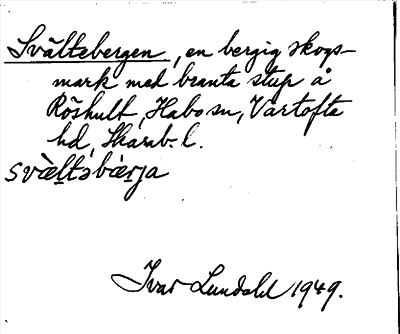 Svältebergen, en bergig skogs-
mark med branta stup å
Röshult, Habo sn, Vartofta
hd, Skarab. l.
svæ̀ltəbæ̀rja
Ivar Lundahl 1949.